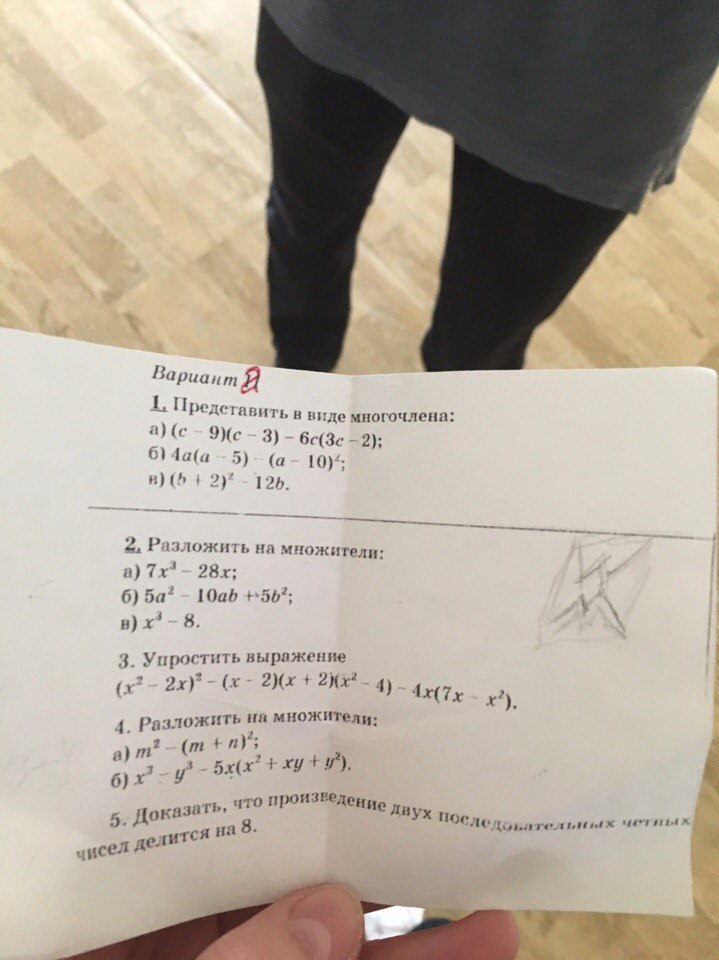 Вариант 2
1. Представить в виде многочлена:
а) (c – 9)(c – 3) – 6c(3c – 2);
б) 4a(a – 5) – (a – 10)²;
в) (b + 2)² – 12b.
2. Разложить на множители:
а) 7x³ – 28x;
б) 5a² – 10ab + 5b²;
в) x³ – 8.
3. Упростить выражение
(x² – 2x)² – (x – 2)(x + 2)(x² – 4) – 4x(7x – x²).
4. Разложить на множители:
а) m² – (m + n)²;
б) x³ – y³ – 5x(x² + xy + y²).
5. Доказать, что произведение двух последовательных четных
чисел делится на 8.